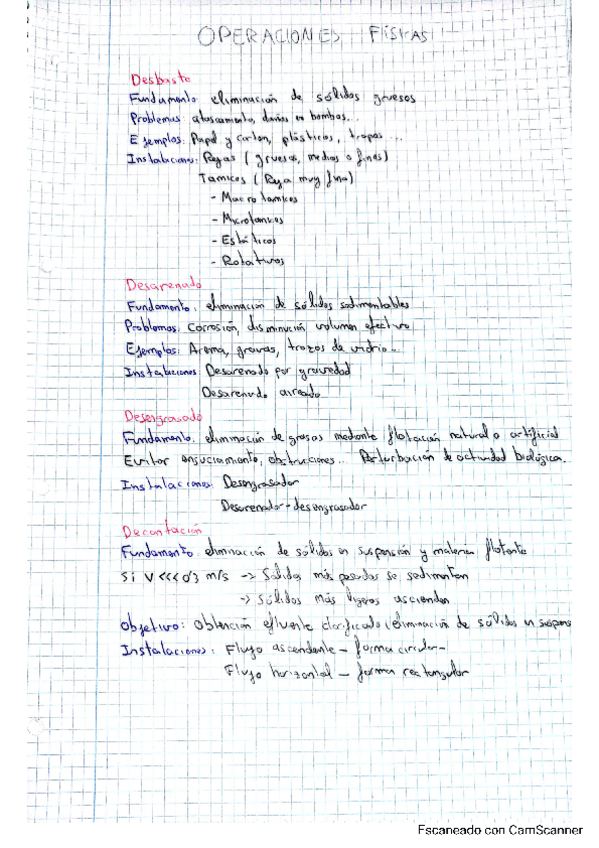 OPERACIONES FÍSICAS
Desbaste
Fundamento: eliminación de sólidos gruesos
Problemas: atascamiento, daños en bombas...
Ejemplos: Papel y cartón, plásticos, trapos...
Instalaciones: Rejas (gruesas, medias o finas)
Tamices (Reja muy fina)
- Macrotamices
- Microtamices
- Estáticos
- Rotativos
Desarenado
Fundamento: eliminación de sólidos sedimentables
Problemas: Corrosión, disminución volumen efectivo
Ejemplos: Arena, gravas, trozos de vidrio...
Instalaciones: Desarenado por gravedad
Desarenado aireado
Desengrasado
Fundamento: eliminación de grasas mediante flotación natural o artificial
Evitar ensuciamiento, obstrucciones... Perturbación de actividad biológica.
Instalaciones: Desengrasador
Desarenador-desengrasador
Decantación
Fundamento: eliminación de sólidos en suspensión y materia flotante
Si V <<< 0'3 m/s -> Sólidos más pesados se sedimentan
-> Sólidos más ligeros ascienden
Objetivo: Obtención efluente clarificado (eliminación de sólidos en suspens
Instalaciones: Flujo ascendente - forma circular-
Flujo horizontal - forma rectangular
Escaneado con CamScanner